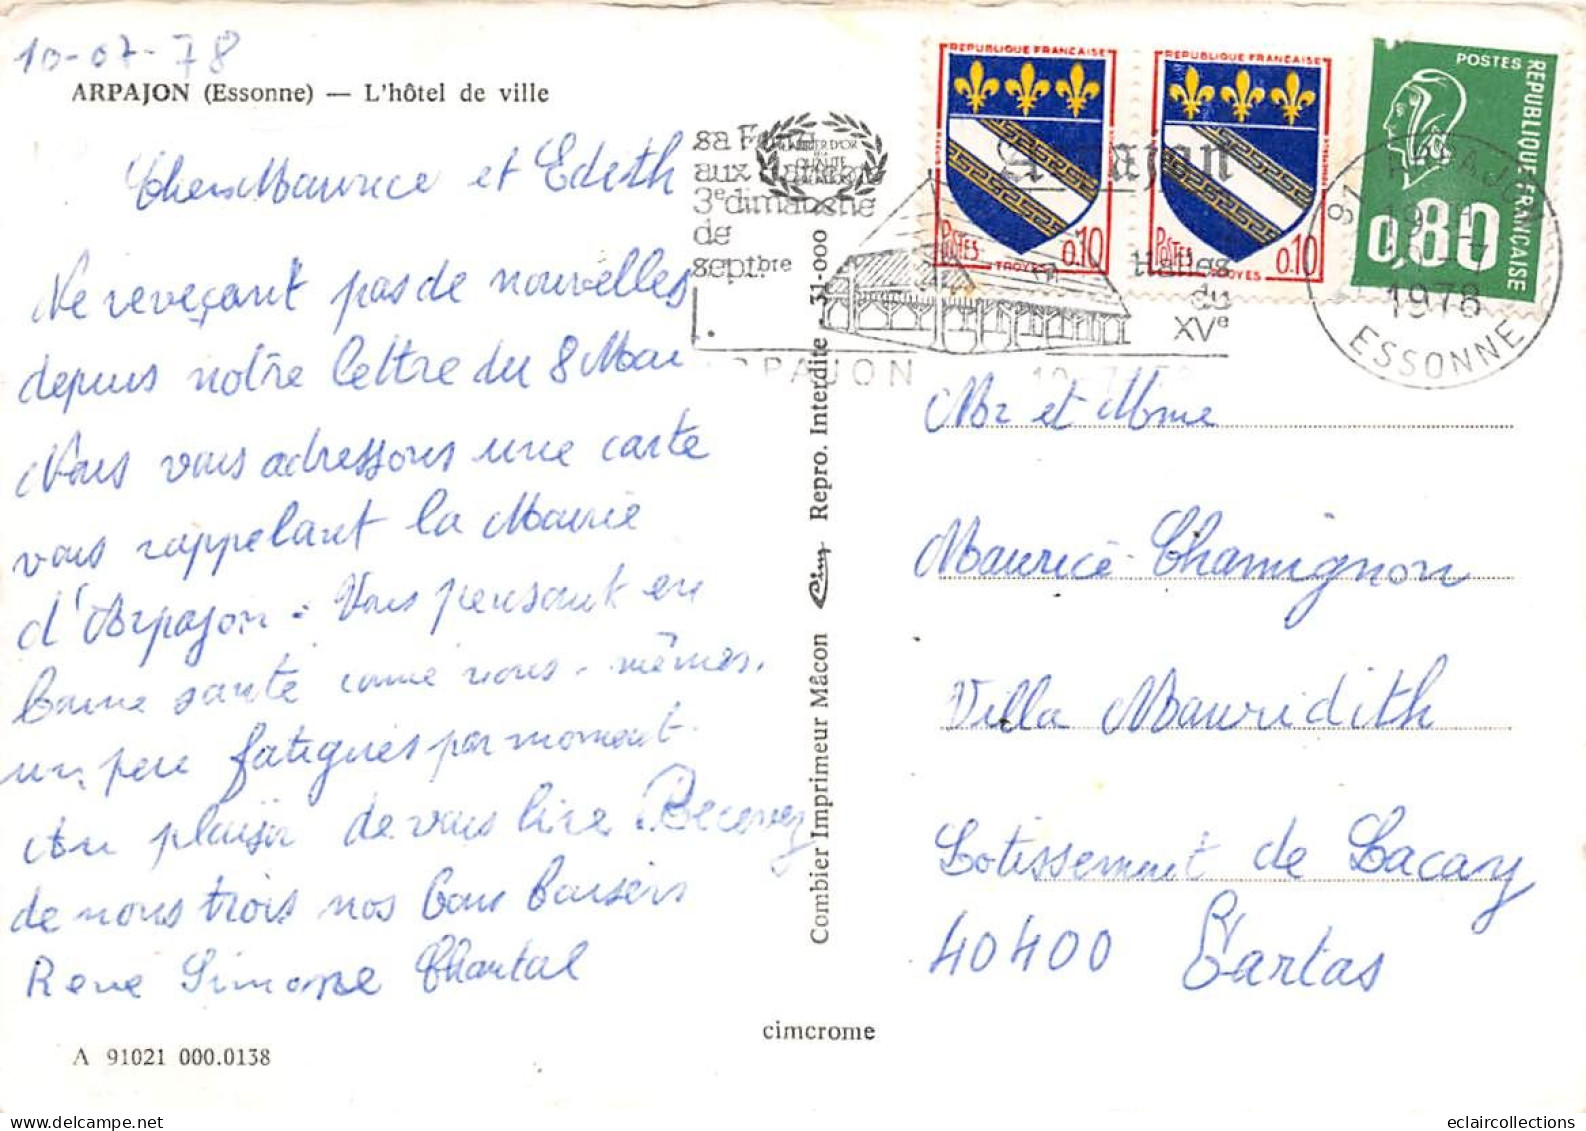 10-07-78
ARPAJON (Essonne) — L'hôtel de ville
Chers Maurice et Edith
Ne reveçant pas de nouvelles
depuis notre lettre du 8 Mai
Nous vous adressons une carte
vous rappelant la Mairie
d'Arpajon. Vous pensant en
bonne santé comme nous-mêmes.
un peu fatigués par moment.
Au plaisir de vous lire Recevez
de nous trois nos bons baisers
René Simone Chantal
A 91021 000.0138
Combier Imprimeur Mâcon Cim Repro. Interdite 31-000
cimcrome
sa Foire
aux
3e dimanche
de
septbre
Arpajon
Halles
du
XVe
ARPAJON
REPUBLIQUE FRANÇAISE
POSTES
0.10
TROYES
REPUBLIQUE FRANÇAISE
POSTES
0.10
TROYES
POSTES
REPUBLIQUE FRANÇAISE
0,80
91 ARPAJON
1978
ESSONNE
Mr et Mme
Maurice Chamignon
Villa Mauridith
Lotissement de Lacay
40400 Tartas
eclaircollections